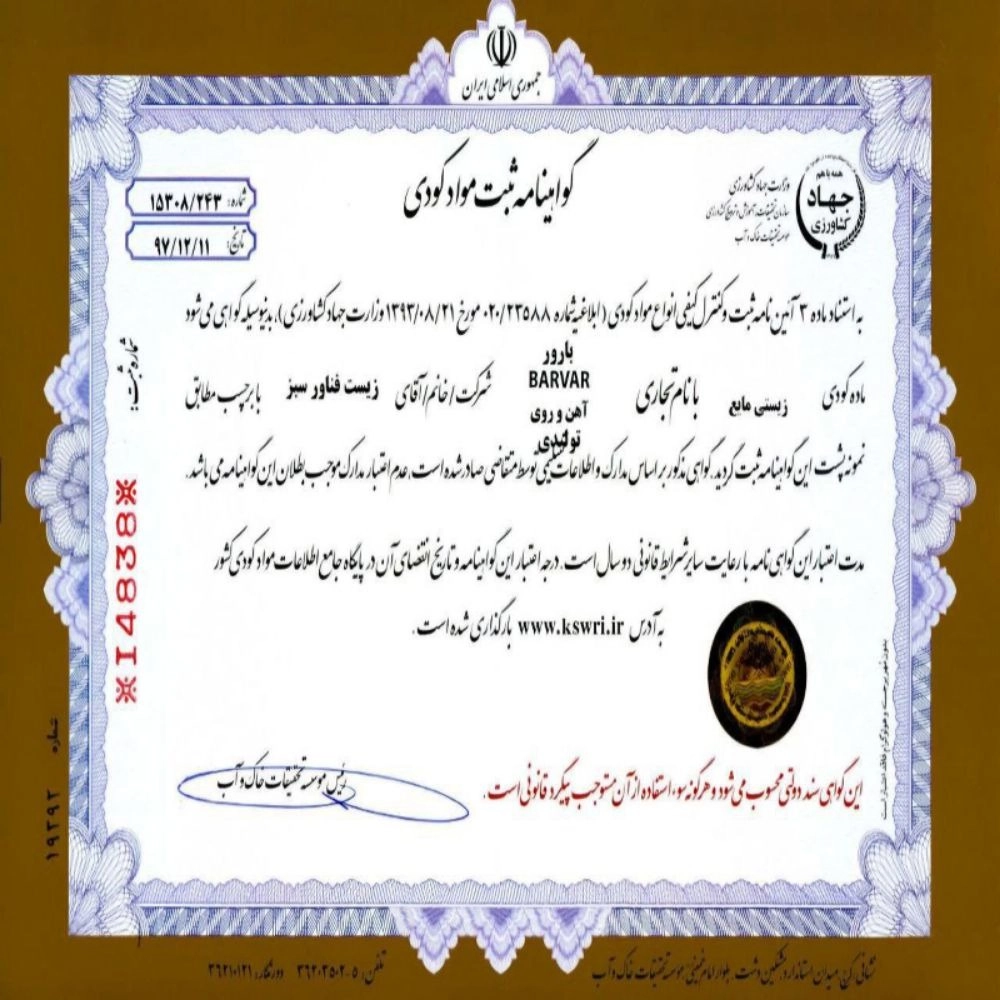 جمهوری اسلامی ایران
همه با هم
جهاد
کشاورزی
وزارت جهاد کشاورزی
سازمان تحقیقات، آموزش و ترویج کشاورزی
موسسه تحقیقات خاک و آب
گواهینامه ثبت مواد کودی
شماره: ۱۵۳۰۸/۲۴۳
تاریخ: ۹۷/۱۲/۱۱
به استناد ماده ۳ آئین نامه ثبت و کنترل کیفی انواع مواد کودی (ابلاغیه شماره ۰۲۰/۲۳۵۸۸ مورخ ۱۳۹۳/۰۸/۲۱ وزارت جهاد کشاورزی)، بدینوسیله گواهی می شود
ماده کودی زیستی مایع با نام تجاری بارور BARVAR آهن و روی تولیدی شرکت/خانم/آقای زیست فناور سبز با برچسب مطابق
نمونه پشت این گواهینامه ثبت گردید. گواهی مذکور بر اساس مدارک و اطلاعات توسط متقاضی صادر شده است، عدم اعتبار مدارک موجب بطلان این گواهینامه می باشد.
مدت اعتبار این گواهی نامه با رعایت سایر شرایط قانونی دو سال است. درجه اعتبار این گواهینامه و تاریخ انقضای آن در پایگاه جامع اطلاعات مواد کودی کشور
به آدرس www.kswri.ir بارگذاری شده است.
این گواهی سند دولتی محسوب می شود و هرگونه سوء استفاده از آن مستوجب پیگرد قانونی است.
رئیس موسسه تحقیقات خاک و آب
شماره ثبت:
※14838※
شماره ۱۹۳۹۲
بدون مهر برجسته و هولوگرام فاقد اعتبار است
نشانی: کرج، میدان استاندارد، مشکین دشت، بلوار امام خمینی، موسسه تحقیقات خاک و آب
تلفن: ۵-۳۶۲۰۳۵۰۲ دورنگار: ۳۶۲۱۰۱۲۱